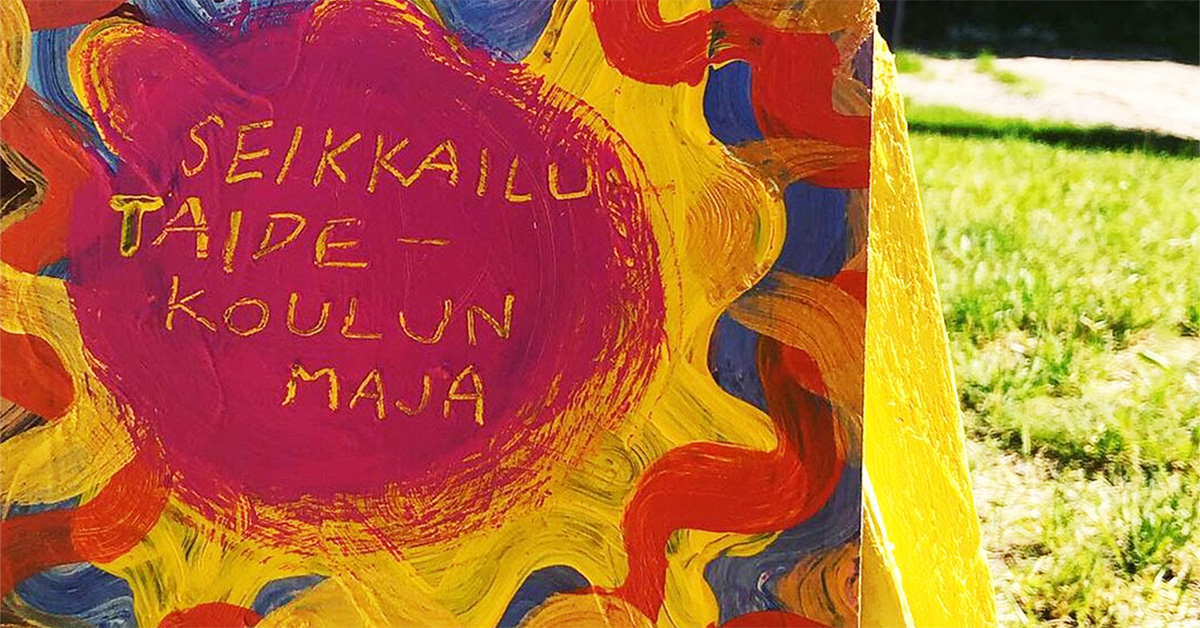 SEIKKAILU
TAIDE -
KOULUN
MAJA